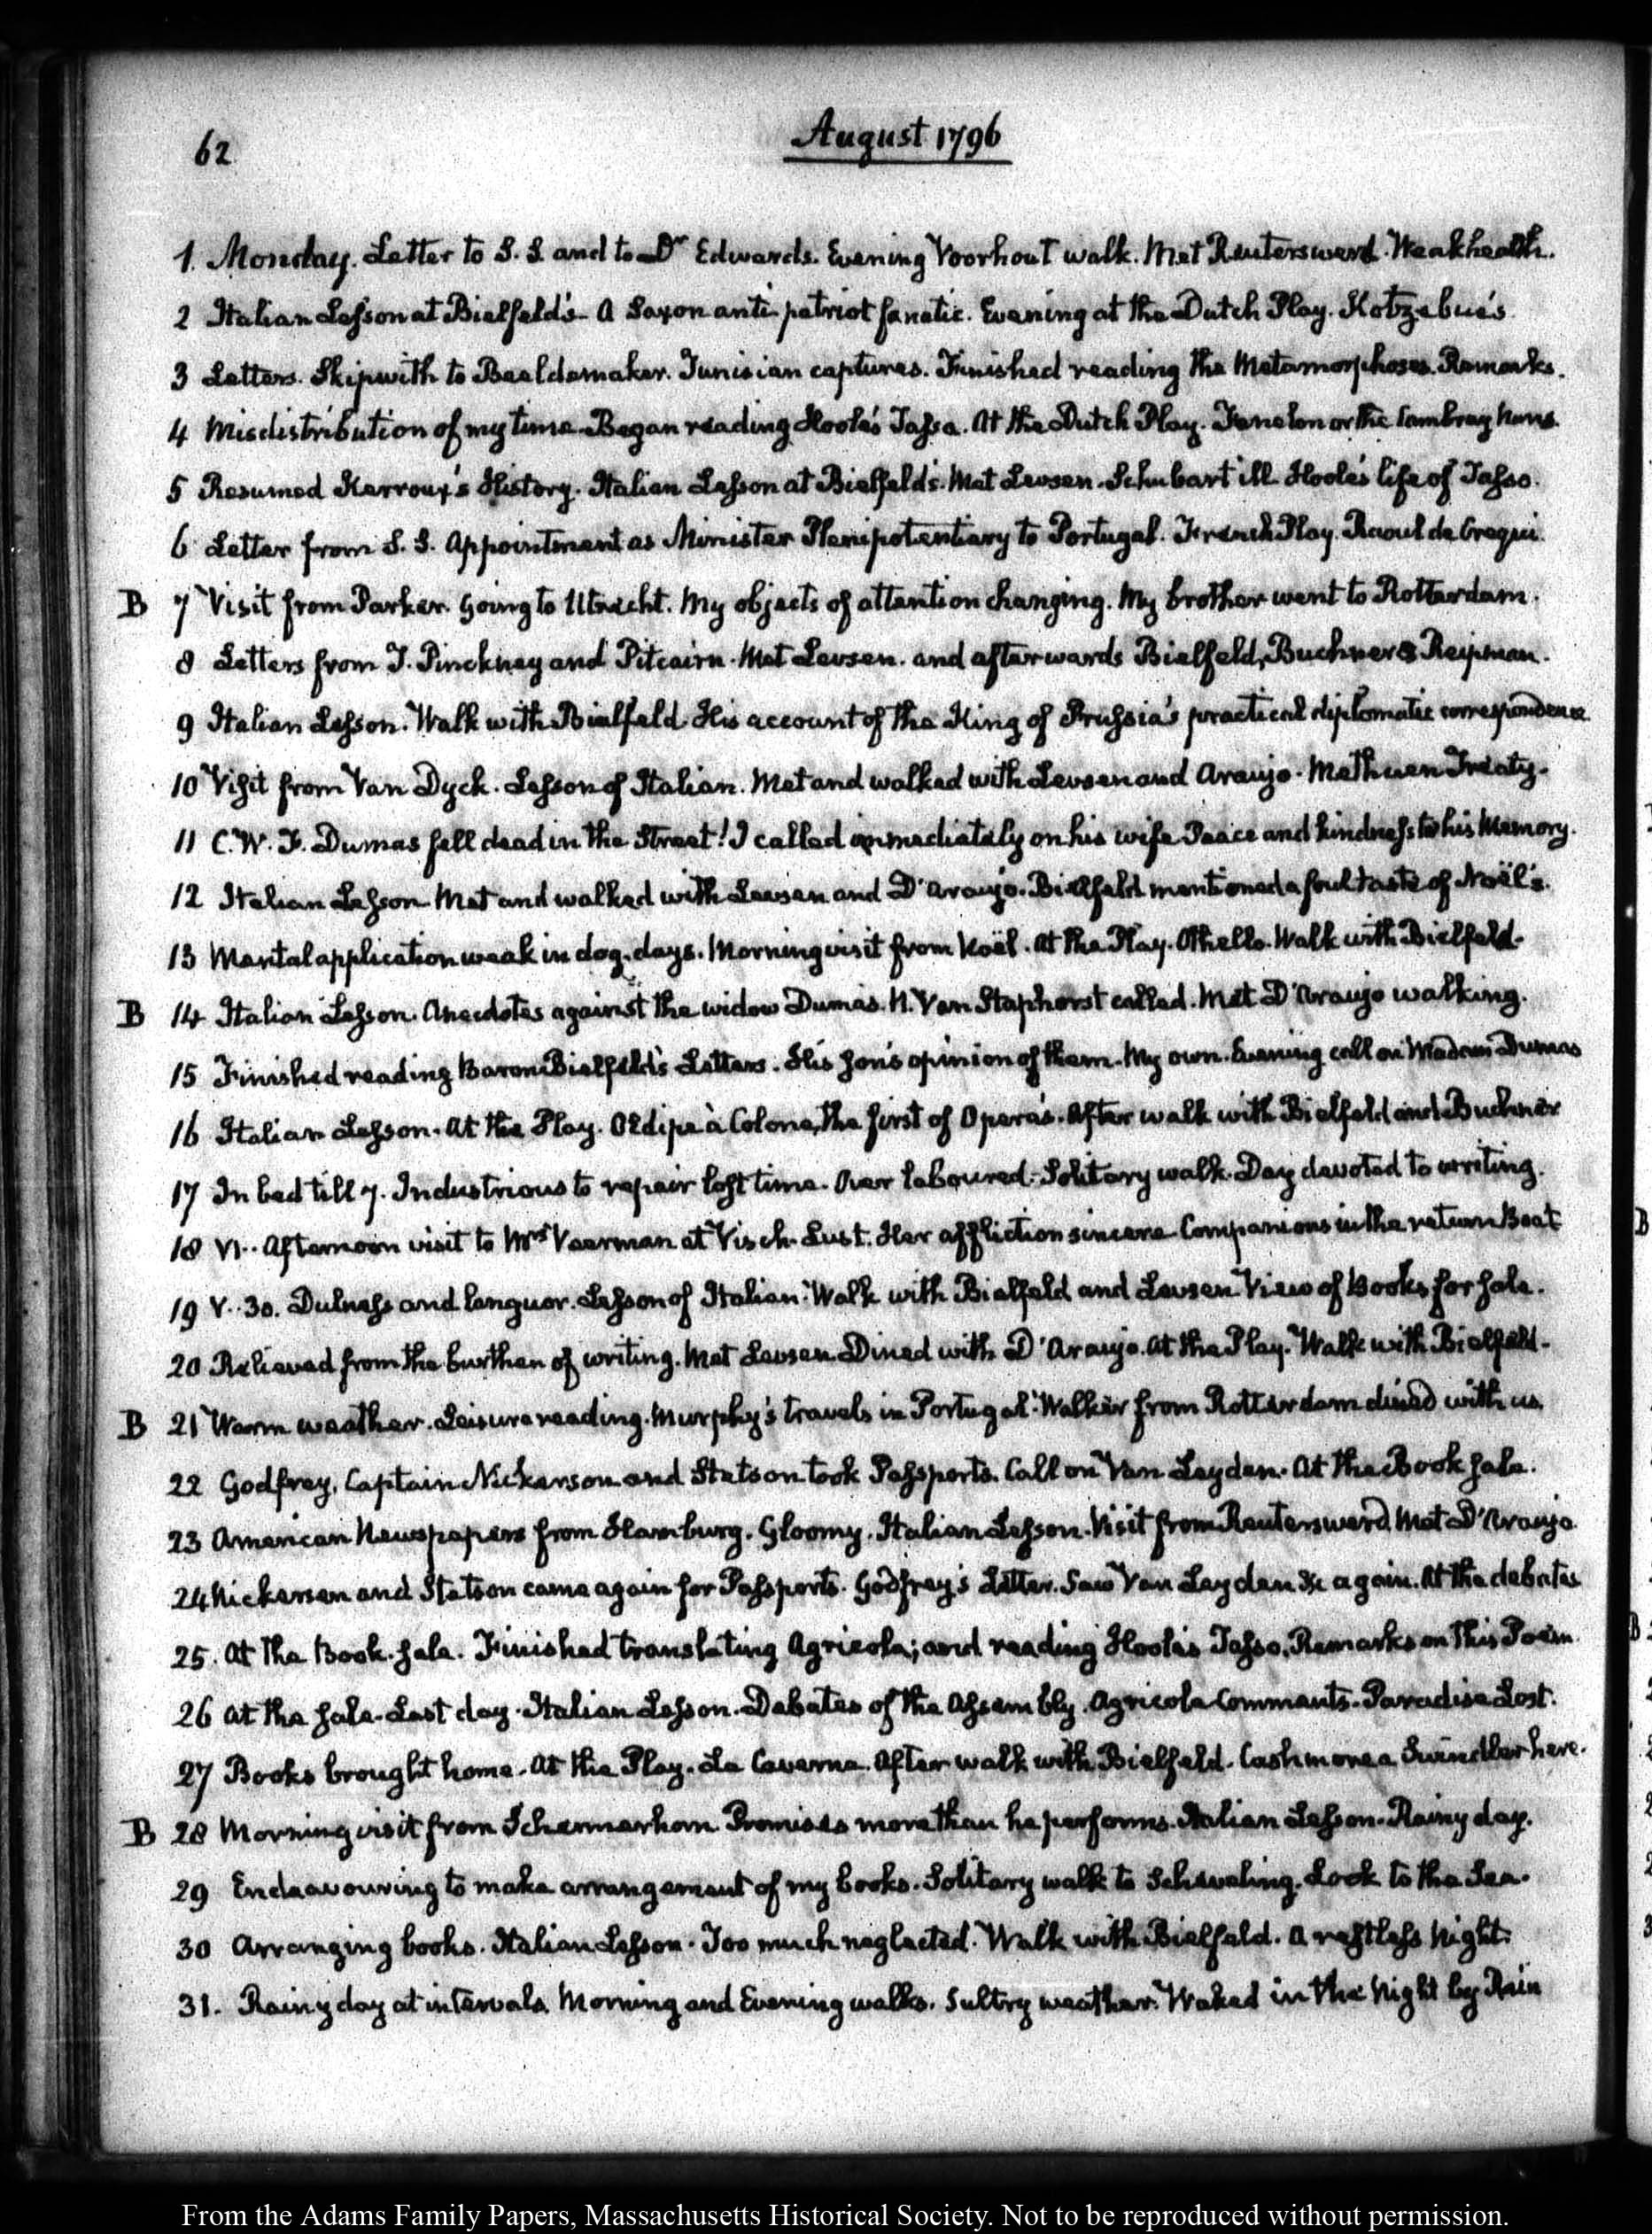 62
August 1796
1. Monday. Letter to S. S. and to Dr Edwards. Evening Voorhout walk. Met Reutersward. Weak health.
2 Italian Lesson at Bielfeld's. A Saxon anti patriot fanatic. Evening at the Dutch Play. Kotzebue's.
3 Letters. Skipwith to Beeldemaker. Tunisian captures. Finished reading the Metamorphoses. Remarks.
4 Misdistribution of my time. Began reading Hoole's Tasso. At the Dutch Play. Fenelon or the Cambray Nuns.
5 Resumed Kerroux's History. Italian Lesson at Bielfeld's. Met Levsen. Schubart ill. Hoole's life of Tasso.
6 Letter from S. S. Appointment as Minister Plenipotentiary to Portugal. French Play. Raoul de Crequi.
B 7 Visit from Parker. Going to Utrecht. My objects of attention changing. My brother went to Rotterdam.
8 Letters from T. Pinckney and Pitcairn. Met Levsen. and afterwards Bielfeld, Buchner & Reipman.
9 Italian Lesson. Walk with Bielfeld. His account of the King of Prussia's practical diplomatic correspondence.
10 Visit from Van Dyck. Lesson of Italian. Met and walked with Levsen and Araujo. Methuen Treaty.
11 C. W. F. Dumas fell dead in the Street! I called immediately on his wife. Peace and kindness to his Memory.
12 Italian Lesson. Met and walked with Levsen and D'Araujo. Bielfeld mentioned a foul taste of Noël's.
13 Mental application weak in dog-days. Morning visit from Noël. At the Play. Othello. Walk with Bielfeld.
B 14 Italian Lesson. Anecdotes against the widow Dumas. N. Van Staphorst called. Met D'Araujo walking.
15 Finished reading Baron Bielfeld's Letters. His son's opinion of them. My own. Evening call on Madam Dumas
16 Italian Lesson. At the Play. Œdipe à Colone, the first of Opera's. After walk with Bielfeld and Buchner
17 In bed till 7. Industrious to repair lost time. Over laboured. Solitary walk. Day devoted to writing.
18 VI.. Afternoon visit to Mrs Veerman at Visch-Lust. Her affliction sincere. Companions in the return Boat
19 V..30. Dulness and languor. Lesson of Italian. Walk with Bielfeld and Levsen. View of Books for sale.
20 Relieved from the burthen of writing. Met Levsen. Dined with D'Araujo. At the Play. Walk with Bielfeld.
B 21 Warm weather. Leisure reading. Murphy's travels in Portugal. Walker from Rotterdam dined with us.
22 Godfrey, Captain Nickerson and Stetson took Passports. Call on Van Leyden. At the Book sale.
23 American Newspapers from Hamburg. Gloomy. Italian Lesson. Visit from Reutersward. Met D'Araujo
24 Nickerson and Stetson came again for Passports. Godfrey's Letter. Saw Van Leyden &c again. At the debates
25. At the Book-sale. Finished translating Agricola; and reading Hoole's Tasso. Remarks on this Poem.
26 At the sale. Last day. Italian Lesson. Debates of the Assembly. Agricola Comments. Paradise Lost.
27 Books brought home. At the Play. La Caverne. After walk with Bielfeld. Cashmore a Swindler here.
B 28 Morning visit from Schermerhorn. Promises more than he performs. Italian Lesson. Rainy day.
29 Endeavouring to make arrangement of my books. Solitary walk to Scheveling. Look to the Sea.
30 Arranging books. Italian Lesson. Too much neglected. Walk with Bielfeld. A restless Night.
31. Rainy day at intervals. Morning and Evening walks. Sultry weather. Waked in the Night by Rain
From the Adams Family Papers, Massachusetts Historical Society. Not to be reproduced without permission.